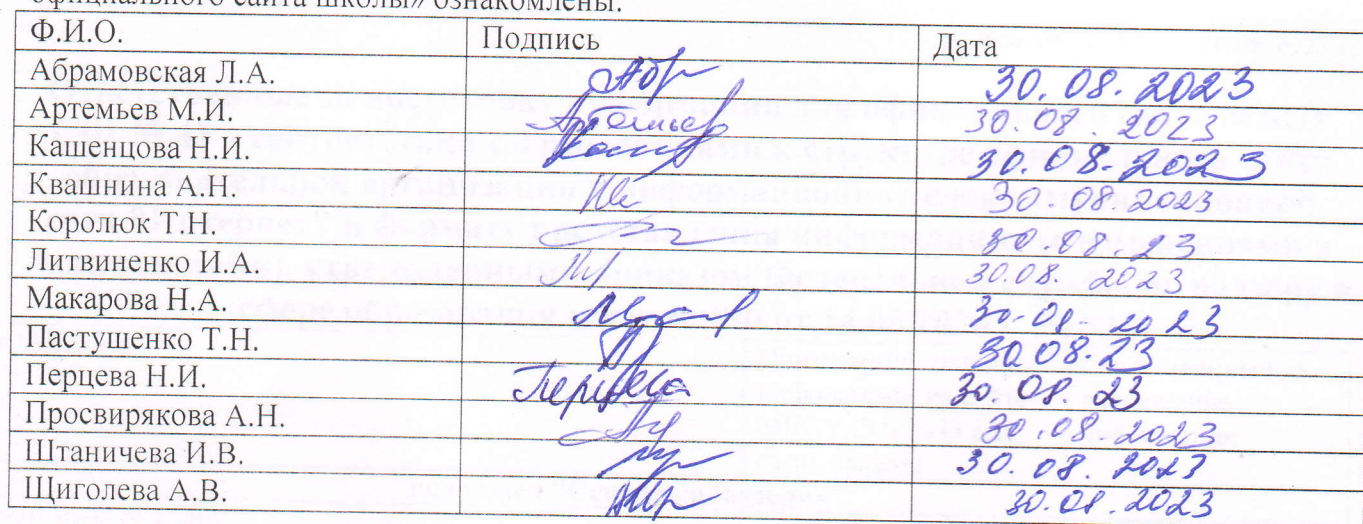 официального сайта школы» ознакомлены.
Ф.И.О. Подпись Дата
Абрамовская Л.А. 30.08.2023
Артемьев М.И. Артемьев 30.08.2023
Кашенцова Н.И. 30.08.2023
Квашнина А.Н. 30 08.2023
Королюк Т.Н. 30.08.23
Литвиненко И.А. 30.08. 2023
Макарова Н.А. 30.08.2023
Пастушенко Т.Н. 30.08.23
Перцева Н.И. Перцева 30.08.23
Просвирякова А.Н. 30.08.2023
Штаничева И.В. 30.08.2023
Щиголева А.В. 30.08.2023